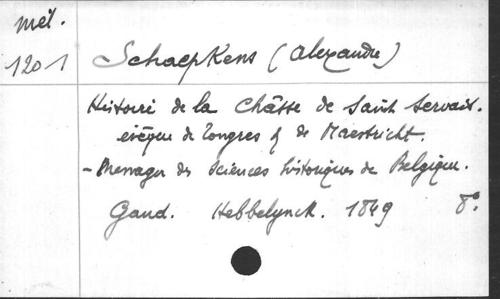 Mél.
1201
Schaepkens (Alexandre)
Histoire de la Châsse de Saint Servais.
évêque de Tongres & de Maestricht.
- Messager des Sciences historiques de Belgique.
Gand. Hebbelynck. 1849 8°.